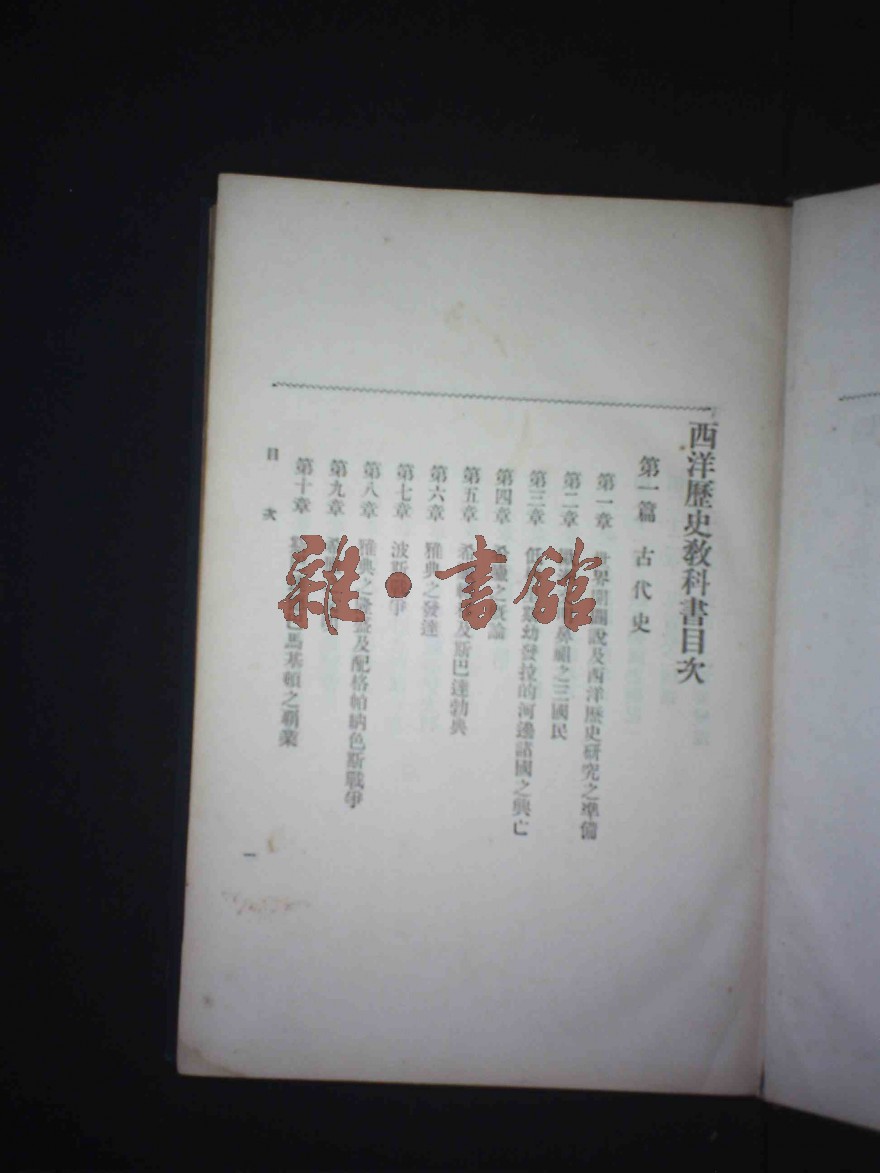 西洋歷史教科書目次
第一篇 古代史
第一章 世界 說及西洋歷史硏究之準備
第二章 之三國民
第三章 幼發拉的河邊諸國之興亡
第四章 希臘之 論
第五章 希 及斯巴達勃典
第六章 雅典之發達
第七章 波斯戰爭
第八章 雅典之 及配格帕納色斯戰爭
第九章
第十章 馬基頓之霸業
目次
一
雜·書館